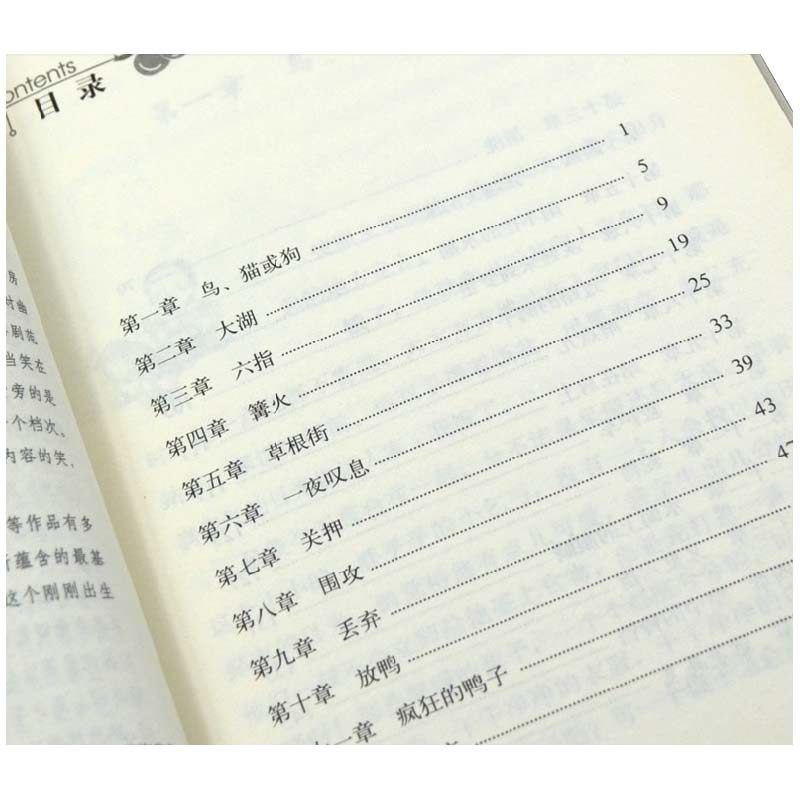 ontents
目录
第一章 鸟、猫或狗 1
第二章 大湖 5
第三章 六指 9
第四章 篝火 19
第五章 草根街 25
第六章 一夜叹息 33
第七章 关押 39
第八章 围攻 43
第九章 丢弃 47
第十章 放鸭
一章 疯狂的鸭子
房
剧范
当笑在
旁的是
个档次。
内容的笑,
等作品有多
蕴含的最基
这个刚刚出生